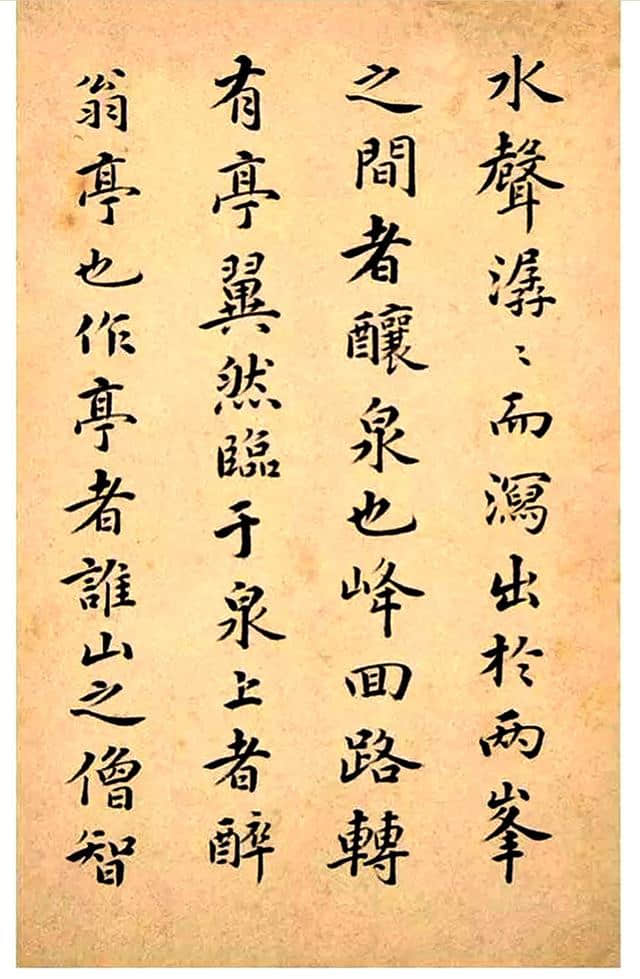 水聲潺〻而瀉出於两峯
之間者釀泉也峰回路轉
有亭翼然臨于泉上者醉
翁亭也作亭者誰山之僧智